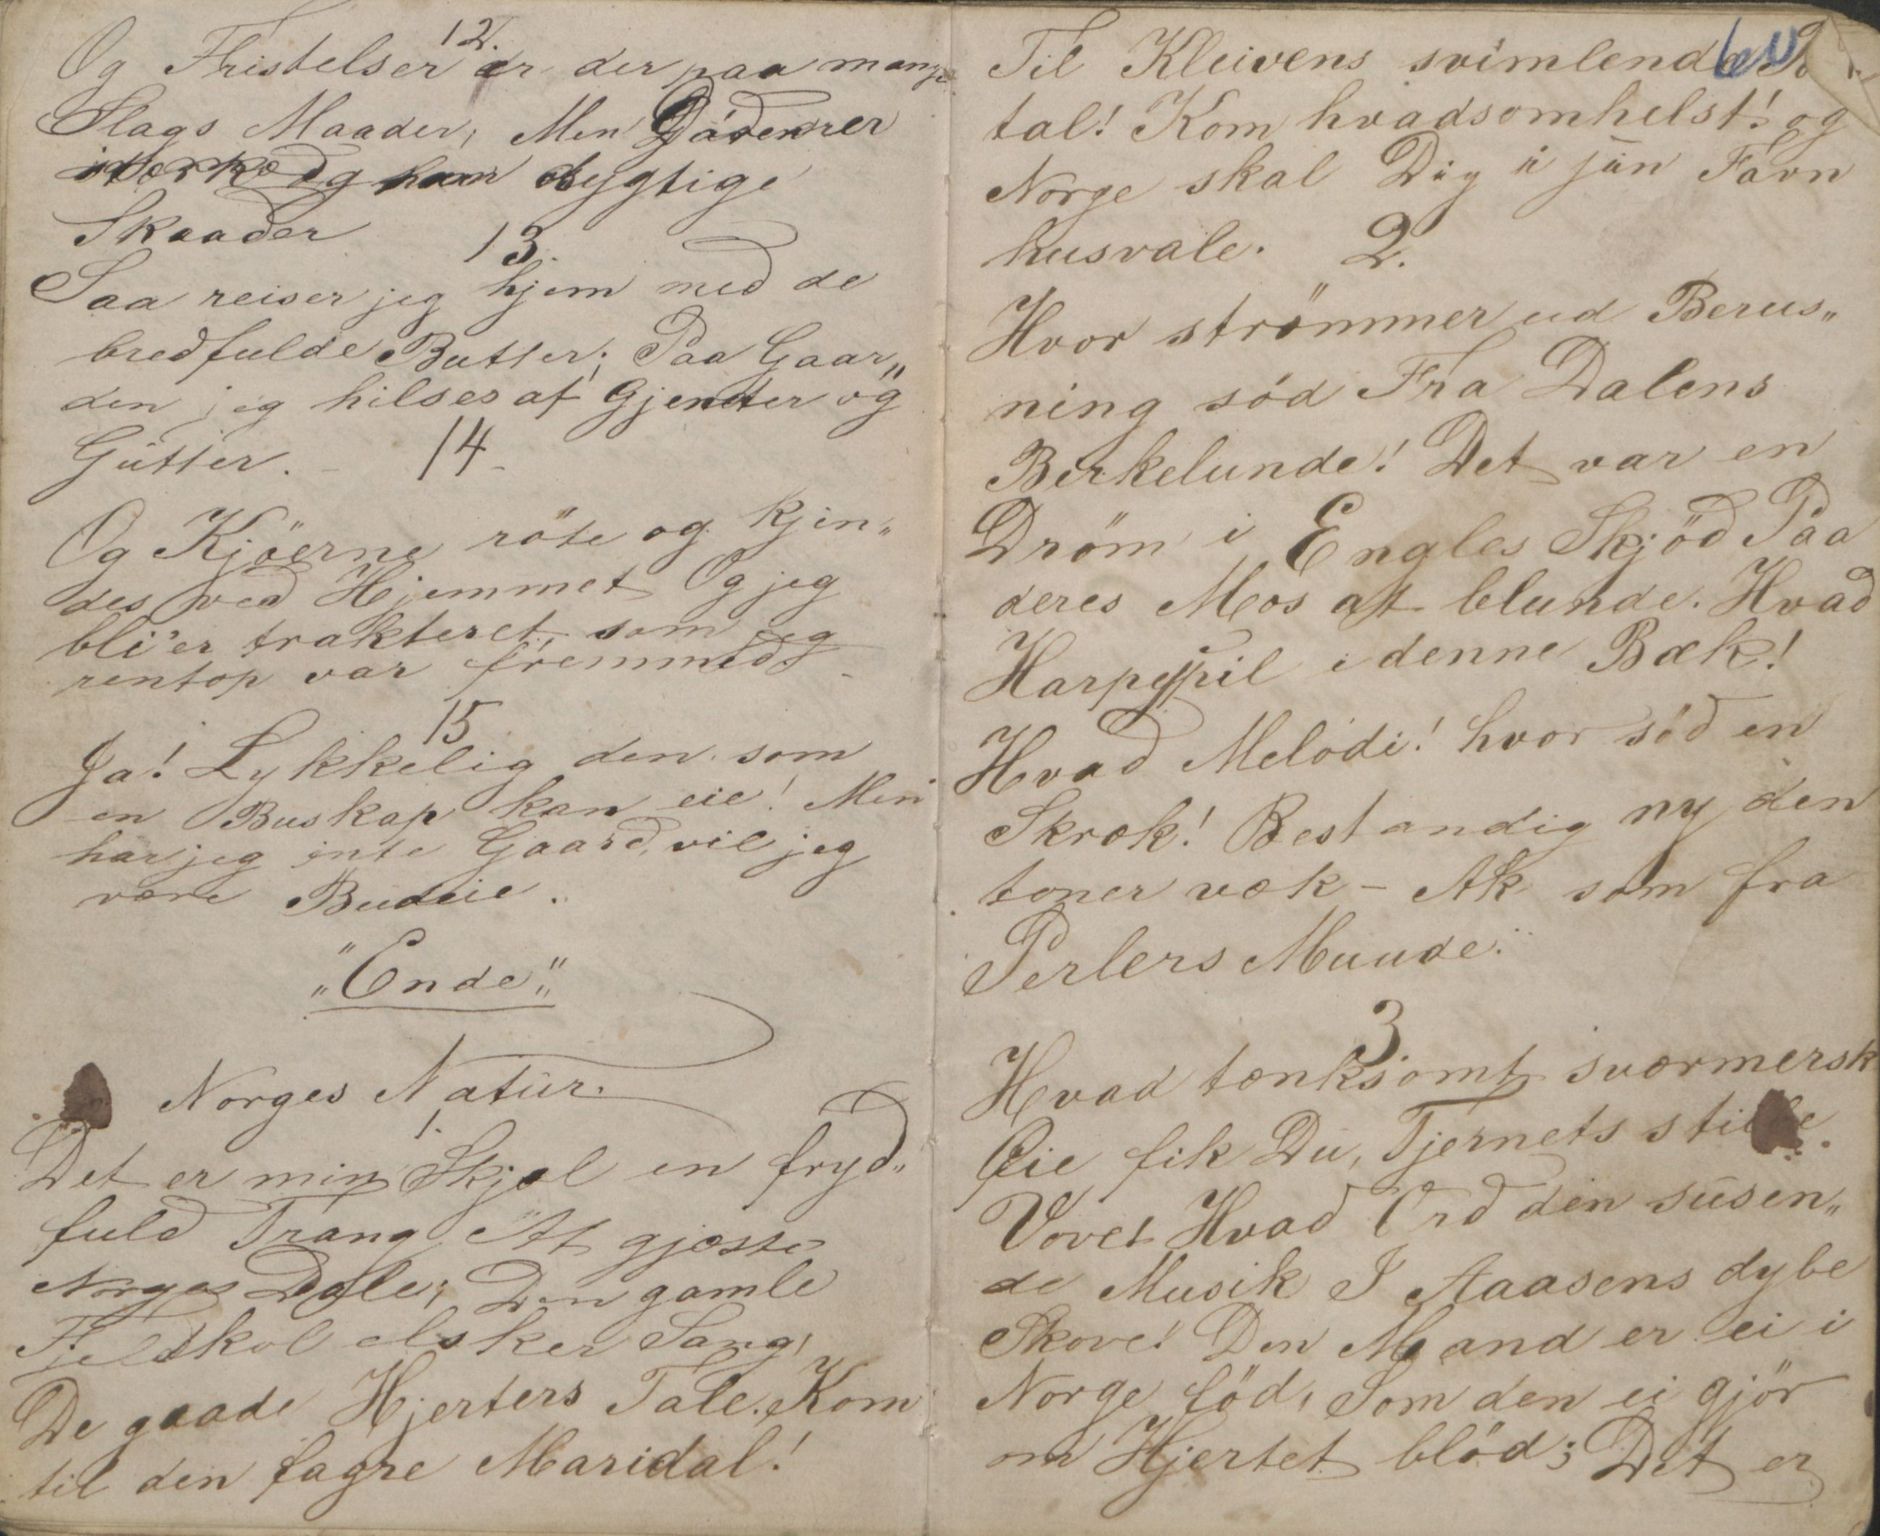 12.
Og Fristelser er der paa mange
Slags Maader, Men Dören er
sterk og har dygtige
Skaader
13.
Saa reiser jeg hjem med de
bredfulde Butter; Paa Gaar„
den jeg hilses af Gjenter og
Gutter.
14.
Og Kjöerne röte og kjin„
des ved Hjemmet Og jeg
bli'er trakteret som jeg
rentop var fremmed
15
Ja! Lykkelig den som
en Buskap kan eie! Men
har jeg inte Gaard, vil jeg
være Budeie.
„Ende„
Norges Natur.
1.
Det er min Skjæl en fryd„
fuld Trang At gjæste
Norges Dale; Den gamle
Fjeldkol elsker Sang,
De gaade Hjerters Tale. Kom
til den fagre Maridal!
60
Til Kleivens svimlende
tal! Kom hvadsomhelst! og
Norge skal Dig i sin Favn
husvale.
2.
Hvor strömmer ud Berus„
ning söd Fra Dalens
Berkelunde! Det var en
Dröm i Engles Skjöd Paa
deres Mos at blunde. Hvad
Harpespil i denne Bæk!
Hvad Melodi! hvor söd en
Skræk! Bestandig ny den
toner væk - Ak som fra
Perlers Munde.
3.
Hvad tænksomt sværmersk
Öie fik Du, Tjernets stille
Vove! Hvad Ord den susen„
de Musik I Aaasens dybe
Skove! Den Mand er ei i
Norge föd, Som den ei gjör
om Hjertet blöd; Det er